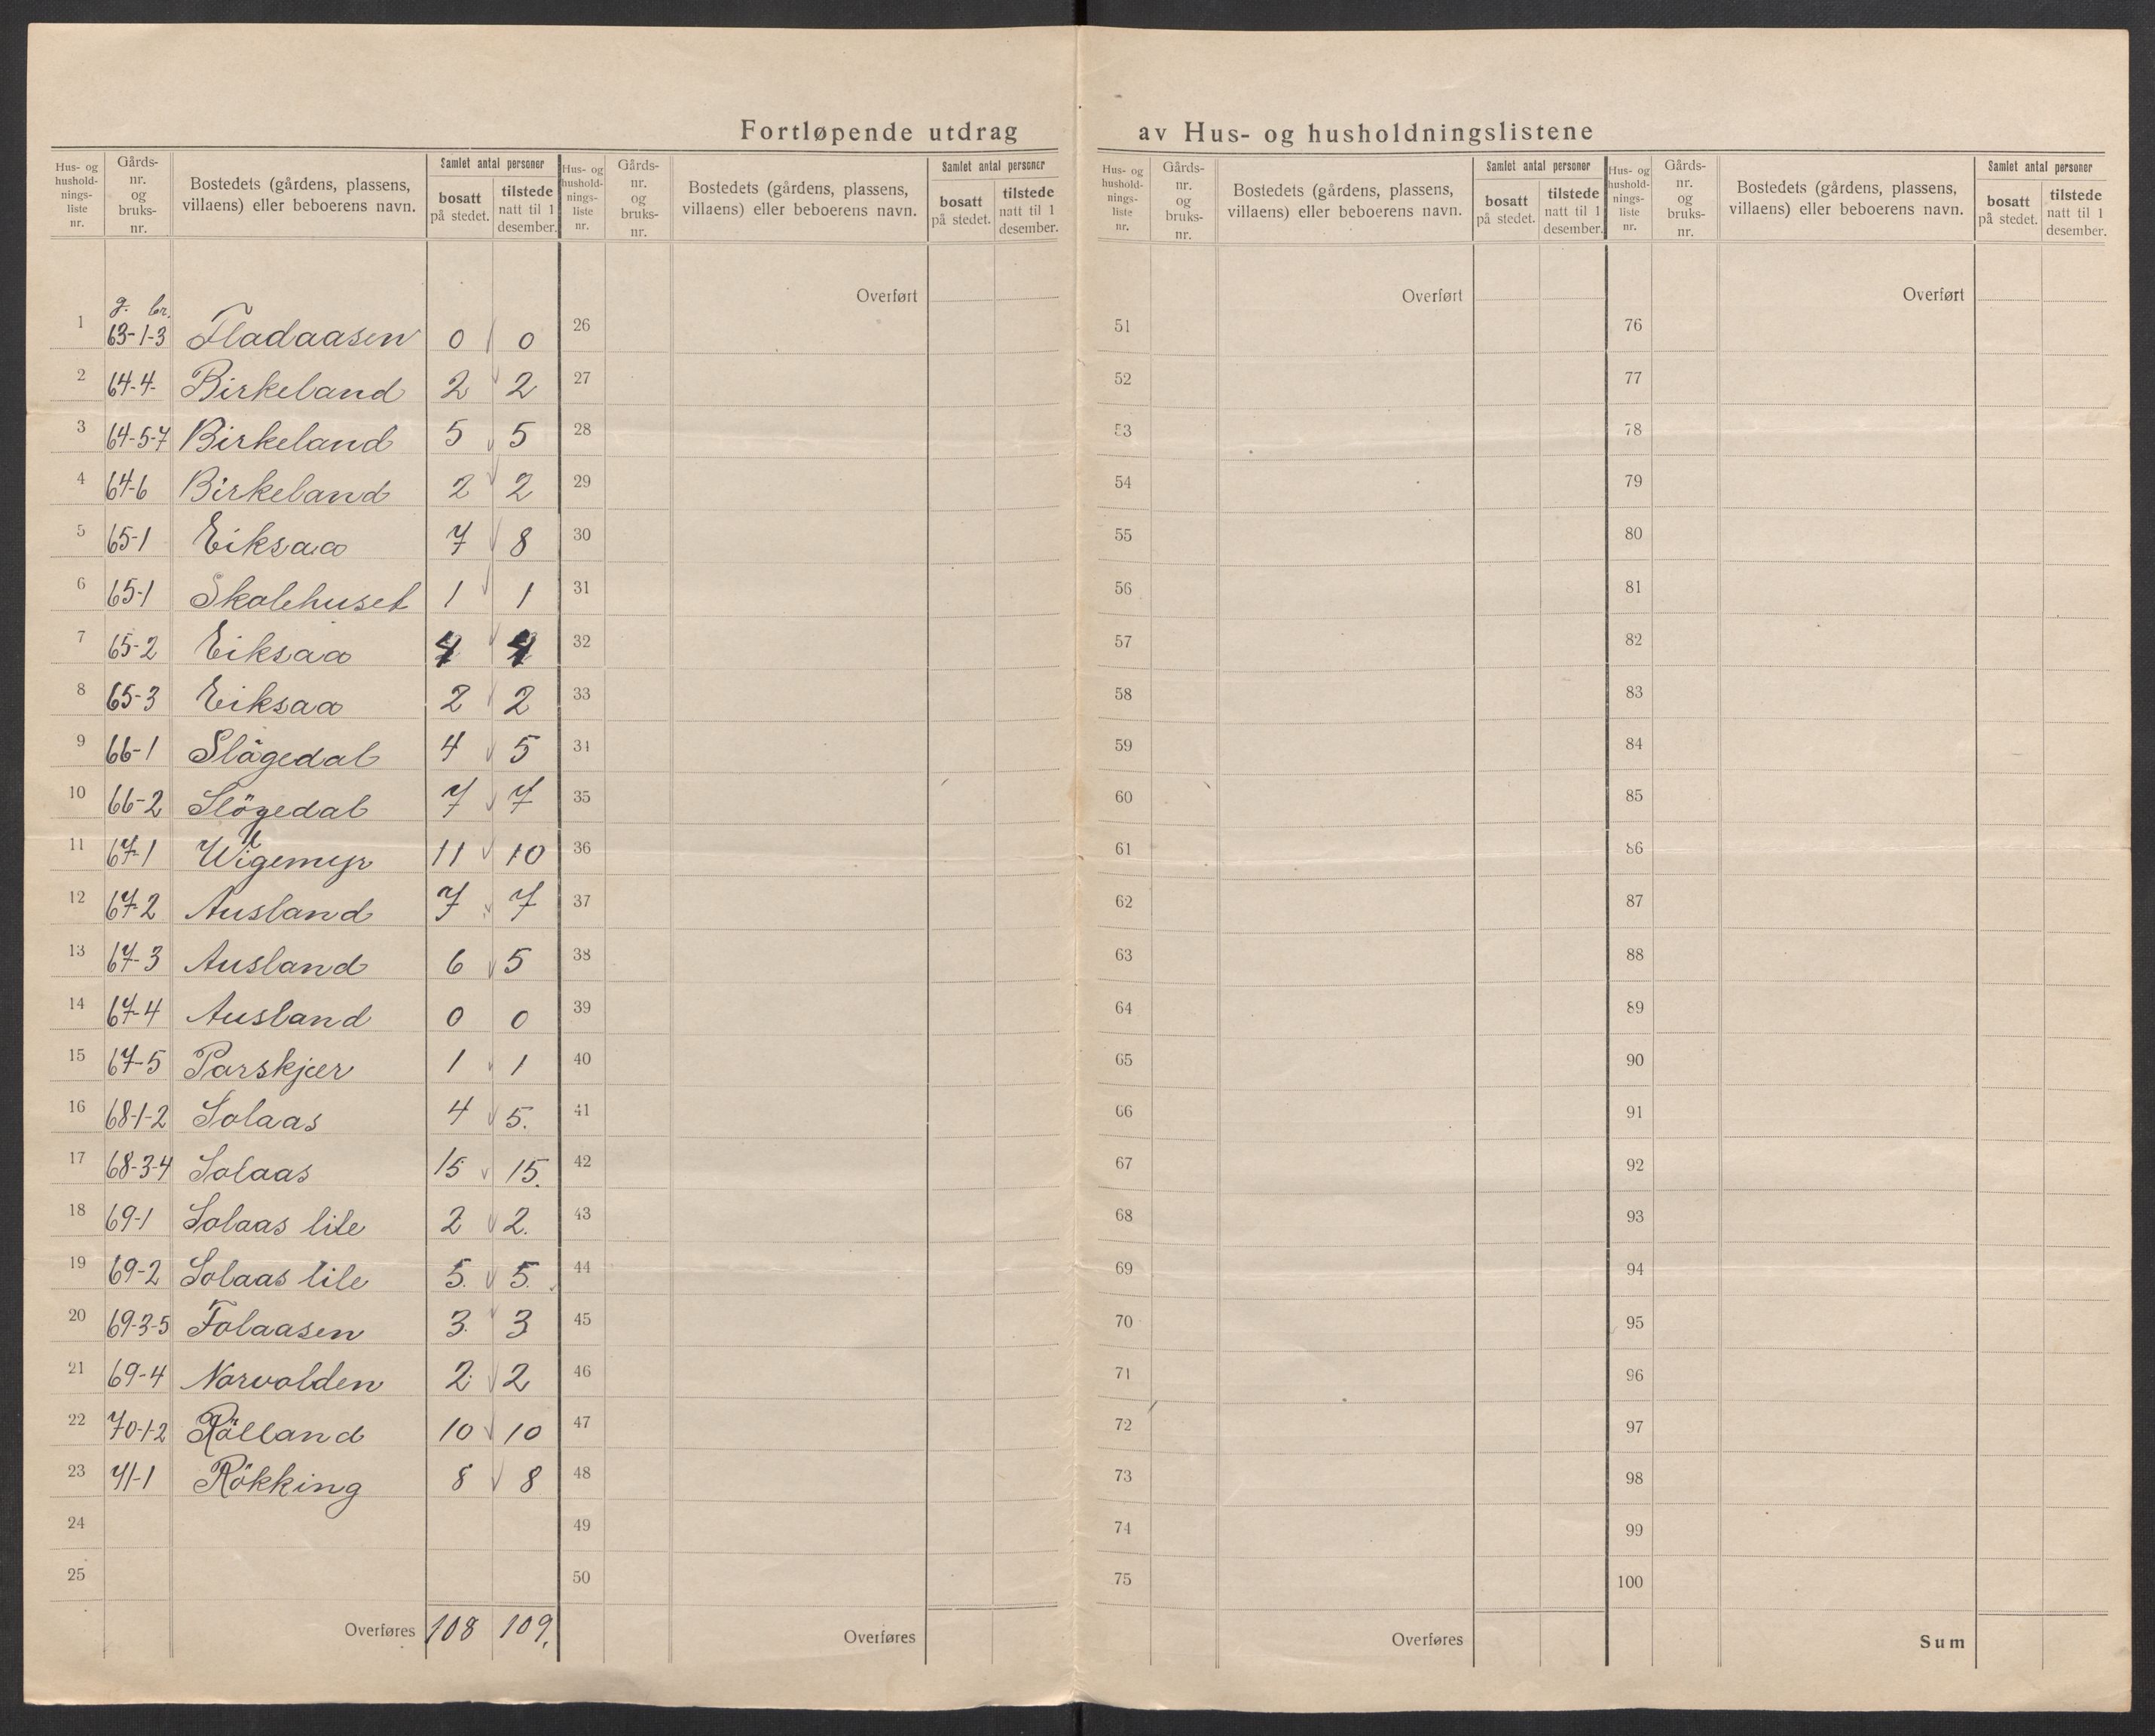 Fortløpende utdrag av Hus- og husholdningslistene
Hus- og hushold- nings- liste nr. Gårds- nr. og bruks- nr. Bostedets (gårdens, plassens, villaens) eller beboerens navn. Samlet antal personer bosatt på stedet. tilstede natt til 1 desember.
Hus- og hushold- nings- liste nr. Gårds- nr. og bruks- nr. Bostedets (gårdens, plassens, villaens) eller beboerens navn. Samlet antal personer bosatt på stedet. tilstede natt til 1 desember.
Hus- og hushold- nings- liste nr. Gårds- nr. og bruks- nr. Bostedets (gårdens, plassens, villaens) eller beboerens navn. Samlet antal personer bosatt på stedet. tilstede natt til 1 desember.
Hus- og hushold- nings- liste nr. Gårds- nr. og bruks- nr. Bostedets (gårdens, plassens, villaens) eller beboerens navn. Samlet antal personer bosatt på stedet. tilstede natt til 1 desember.
g. br.
1 63-1-3 Fladaasen 0 0
2 64-4- Birkeland 2 2
3 64-5-7 Birkeland 5 5
4 64-6 Birkeland 2 2
5 65-1 Eiksaa 7 8
6 65-1 Skolehuset 1 1
7 65-2 Eiksaa 4 4
8 65-3 Eiksaa 2 2
9 66-1 Slögedal 4 5
10 66-2 Slögedal 7 7
11 67-1 Wigemyr 11 10
12 67-2 Ausland 7 7
13 67-3 Ausland 6 5
14 67-4 Ausland 0 0
15 67-5 Parskjer 1 1
16 68-1-2 Solaas 4 5.
17 68-3-4 Solaas 15 15.
18 69-1 Solaas lile 2 2.
19 69-2 Solaas lile 5. 5.
20 69-3-5 Folaasen 3. 3
21 69-4 Norvolden 2 2
22 70-1-2 Rölland 10 10
23 71-1 Rökking 8 8
24
25
Overføres 108 109.
Overført
26
27
28
29
30
31
32
33
34
35
36
37
38
39
40
41
42
43
44
45
46
47
48
49
50
Overføres
Overført
51
52
53
54
55
56
57
58
59
60
61
62
63
64
65
66
67
68
69
70
71
72
73
74
75
Overføres
Overført
76
77
78
79
80
81
82
83
84
85
86
87
88
89
90
91
92
93
94
95
96
97
98
99
100
Sum